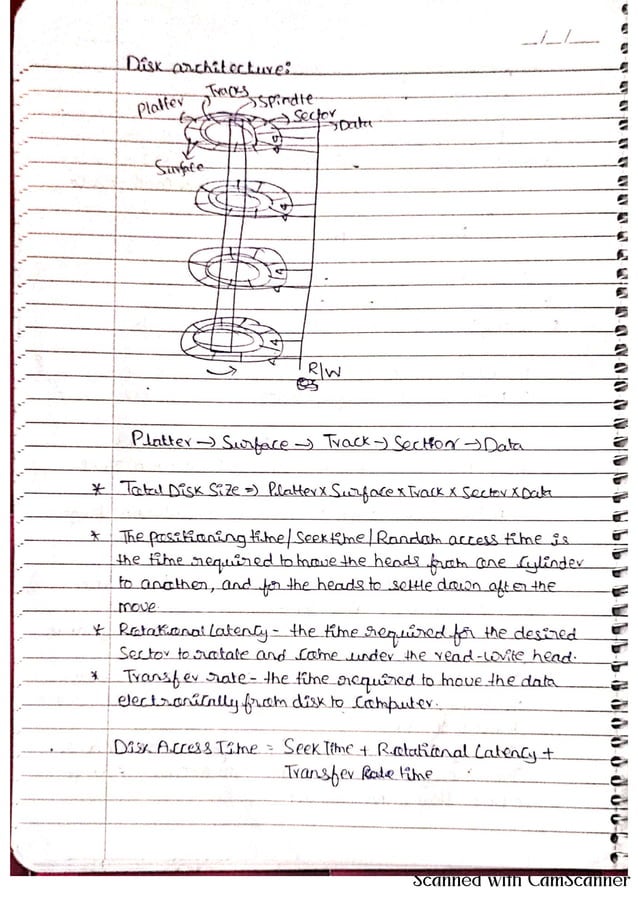 Disk architecture:
Platter
Tracks
Spindle
Sector
Data
Surface
R/W
Platter → Surface → Track → Section → Data
* Total Disk Size ⇒ Platter x Surface x Track x Sector x Data
* The positioning time/Seek time/Random access time is
the time required to move the heads from one Cylinder
to another, and for the heads to settle down after the
move
* Rotational Latency - the time required for the desired
Sector to rotate and come under the read-write head.
* Transfer rate - the time required to move the data
electronically from disk to Computer.
Disk Access Time = Seek Time + Rotational Latency +
Transfer Rate time
Scanned with CamScanner